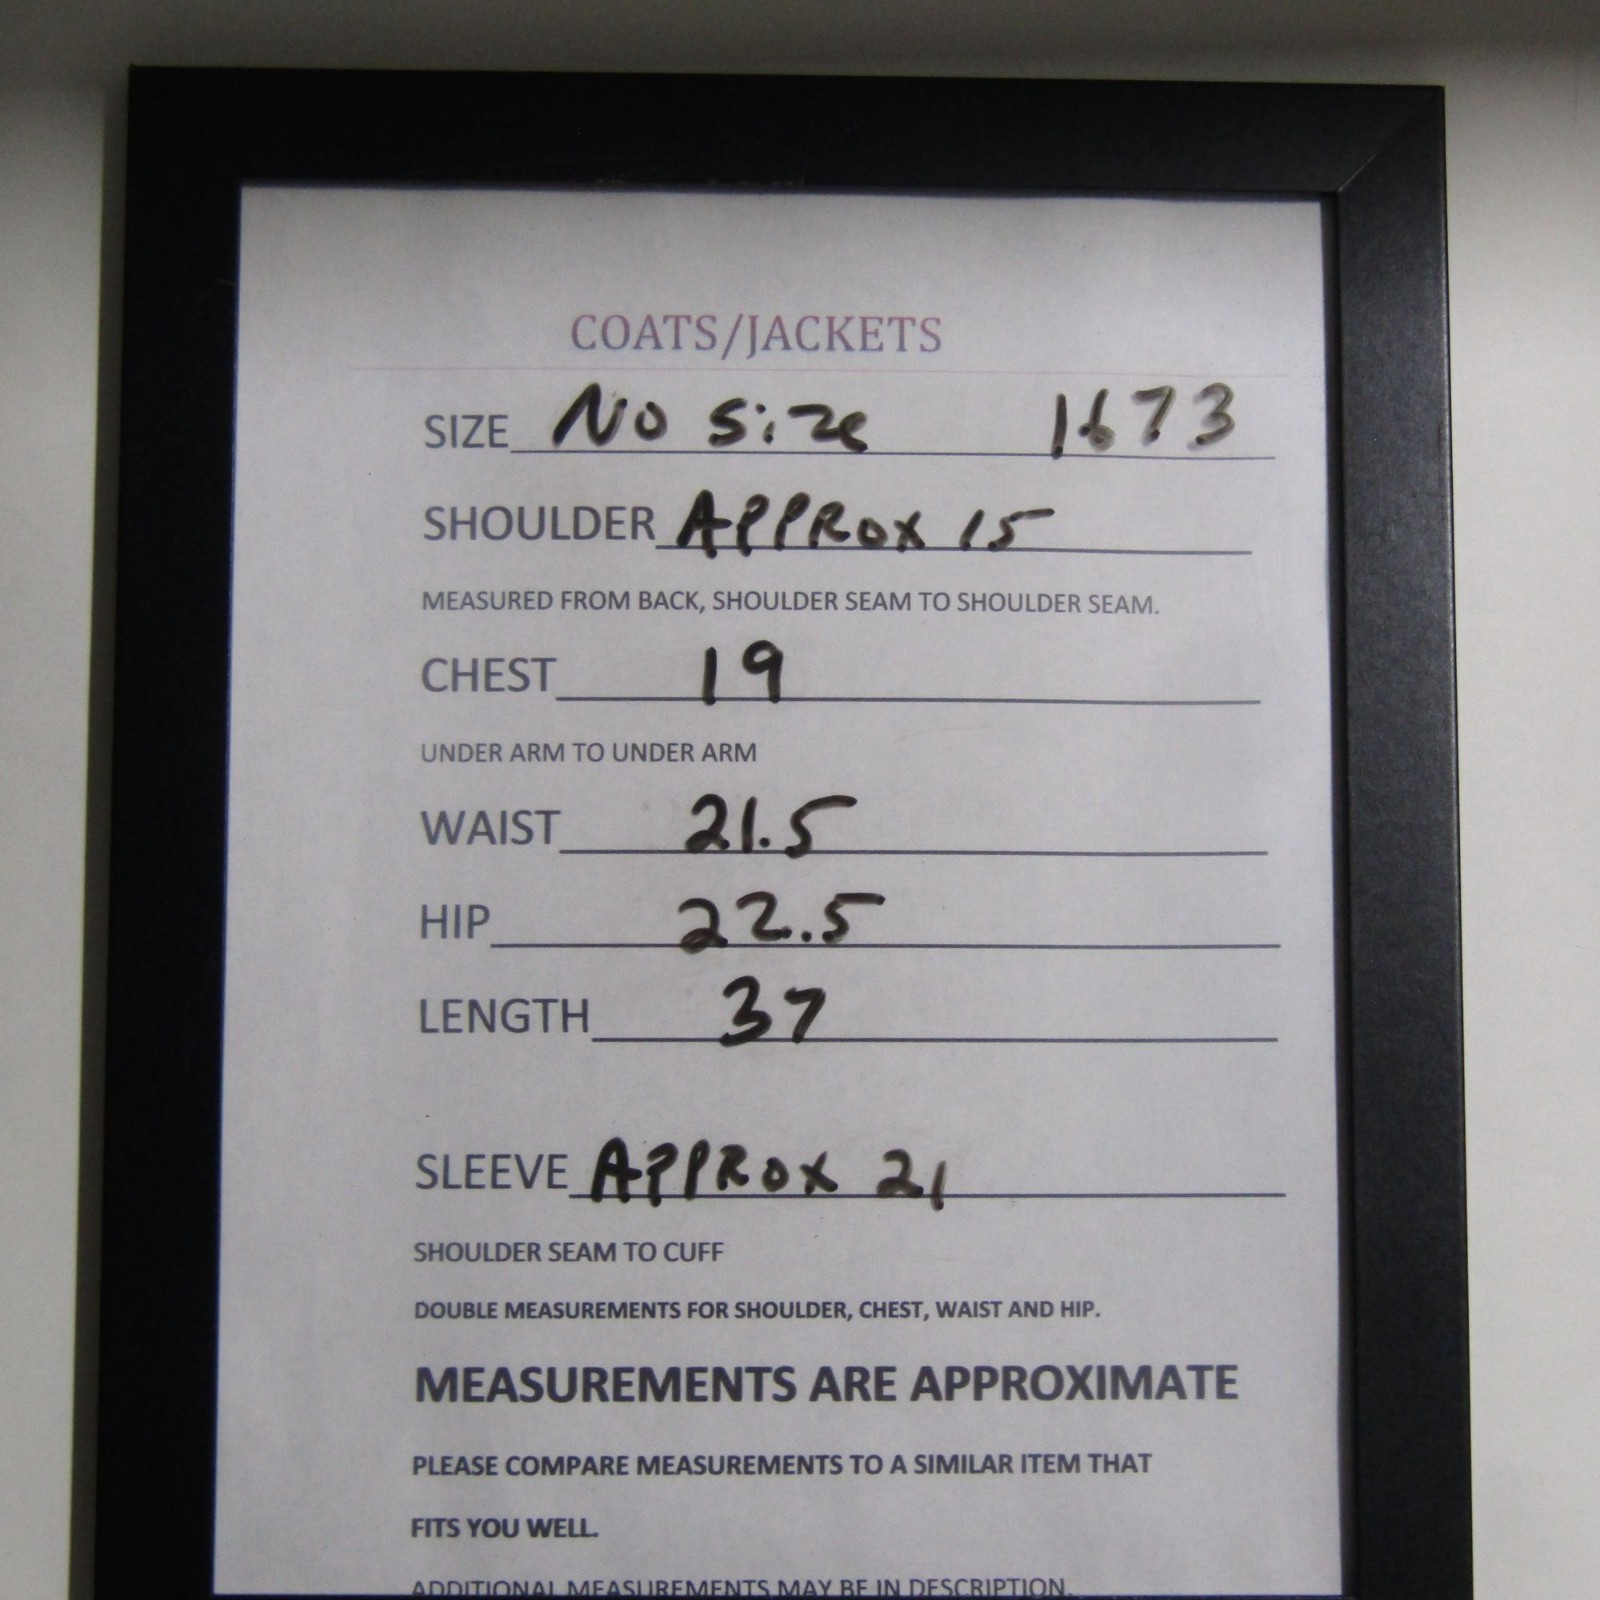 COATS/JACKETS
SIZE No Size 1673
SHOULDER APPROX 15
MEASURED FROM BACK, SHOULDER SEAM TO SHOULDER SEAM.
CHEST 19
UNDER ARM TO UNDER ARM
WAIST 21.5
HIP 22.5
LENGTH 37
SLEEVE APPROX 21
SHOULDER SEAM TO CUFF
DOUBLE MEASUREMENTS FOR SHOULDER, CHEST, WAIST AND HIP.
MEASUREMENTS ARE APPROXIMATE
PLEASE COMPARE MEASUREMENTS TO A SIMILAR ITEM THAT
FITS YOU WELL.
ADDITIONAL MEASUREMENTS MAY BE IN DESCRIPTION.